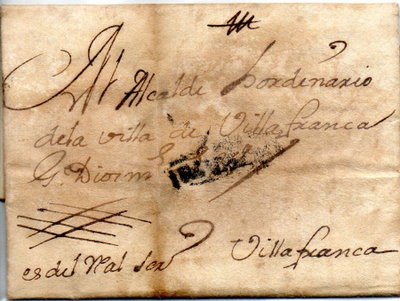 Al Alcalde hordinario
dela villa de Villafranca
G. Dios m s a
es del Real ser
Villafranca